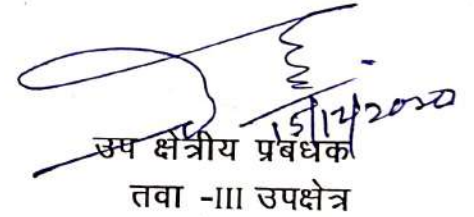 15/12/2020
उप क्षेत्रीय प्रबंधक
तवा -III उपक्षेत्र